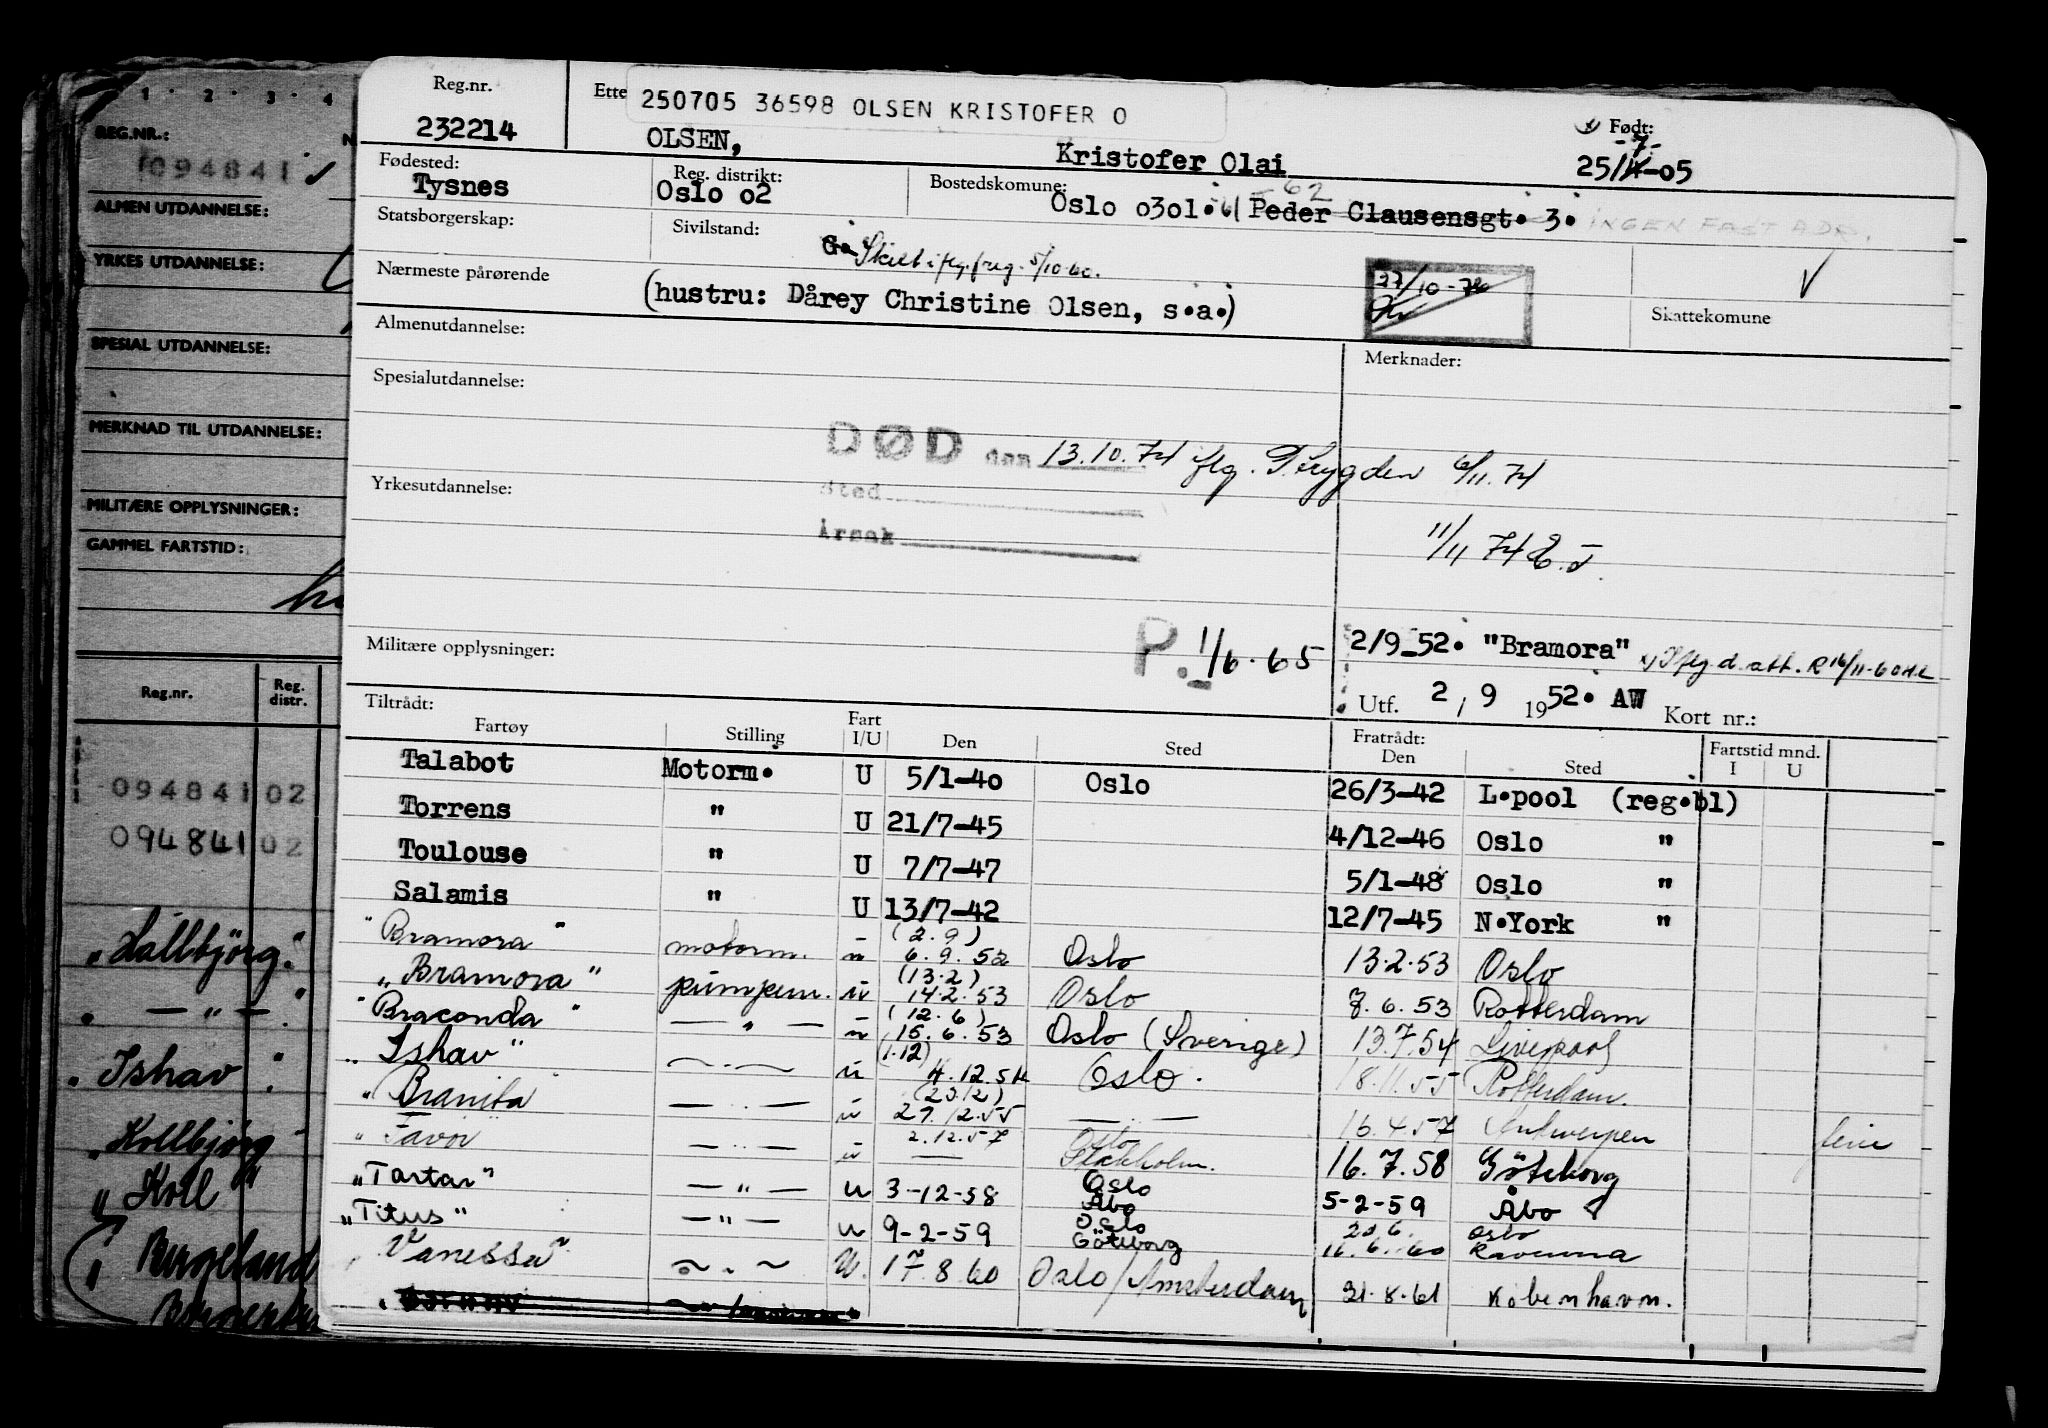 1 · 2 · 3 · 4
REG.NR.:
094841
ALMEN UTDANNELSE:
YRKES UTDANNELSE:
SPESIAL UTDANNELSE:
MERKNAD TIL UTDANNELSE:
MILITÆRE OPPLYSNINGER:
GAMMEL FARTSTID:
Reg.nr. Reg. distr.
094841 02
094841 02
— " —
"Ishav"
"Kollbjørg"
"Koll"
Reg.nr. Ette 250705 36598 OLSEN KRISTOFER O
232214 OLSEN, Kristofer Olai x) Født: -7- 25/4-05
Fødested: Tysnes Reg. distrikt: Oslo o2 Bostedskomune: Oslo o3o1. 61 -62 Peder Clausensgt. 3. INGEN FAST ADR.
Statsborgerskap: Sivilstand: G. Skilt iflg. freg. 5/10-60. V
Nærmeste pårørende (hustru: Dårey Christine Olsen, s.a.) 27/10-72 Skattekomune
Almenutdannelse: Merknader:
Spesialutdannelse:
DØD den 13.10.74 iflg. T.rygden 6/11.74
Yrkesutdannelse: Sted
Årsak 11/11 74 E.J.
Militære opplysninger: P. 1/6.65 2/9_52. "Bramora" x) Iflg. d. att. R 16/11-60
Utf. 2, 9 1952. AW Kort nr.:
Tiltrådt: Fratrådt: Fartstid mnd.
Fartøy Stilling Fart I/U Den Sted Den Sted I U
Talabot Motorm. U 5/1-40 Oslo 26/3-42 L.pool (reg.bl)
Torrens " U 21/7-45 4/12-46 Oslo "
Toulouse " U 7/7-47 5/1-48 Oslo "
Salamis " U 13/7-42 12/7-45 N.York "
"Bramora" motorm. u (2.9) 6.9.52 Oslo 13.2.53 Oslo
"Bramora" pumpem. u (13.2) 14.2.53 Oslo 7.6.53 Rotterdam
"Braconda" — " — u (12.6) 15.6.53 Oslo (Sverige) 13.7.54 Liverpool
"Ishav" — " — u (1.12) 4.12.54 Oslo. 18.11.55 Rotterdam.
"Branita" — " — u (20.12) 27.12.55 — " — 16.4.57 Antwerpen
"Favor" — " — u 2.12.57 — Oslo Stockholm. 16.7.58 Göteborg
"Tartar" — " — u 3-12-58 Oslo Åbo 5-2-59 Åbo
"Titus" — " — u 9-2-59 Oslo Göteborg 20.6. 16.6.60 Oslo Ravenna
"Vanessa" — " — U. 17.8.60 Oslo/Amsterdam 31.8.61 København.